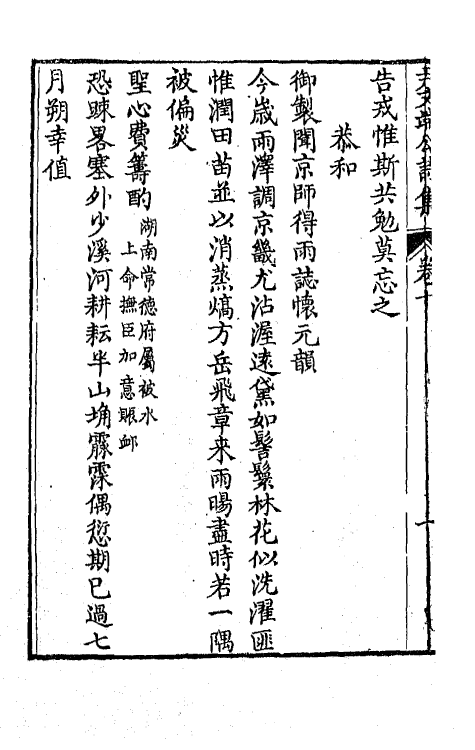 告戎惟斯共勉莫忘之
恭和
御製聞京師得雨誌懷元韻
今歳雨澤調京畿尤沾渥遠黛如髻鬟林花似洗濯匪
惟潤田苗並以消蒸熇方岳飛章来雨暘盡時若一隅
被偏災
聖心費籌酌湖南常德府屬被水
上命撫臣加意賑䘏
恐竦畧塞外少溪河耕耘半山埆霡霂偶愆期已過七
月朔幸值